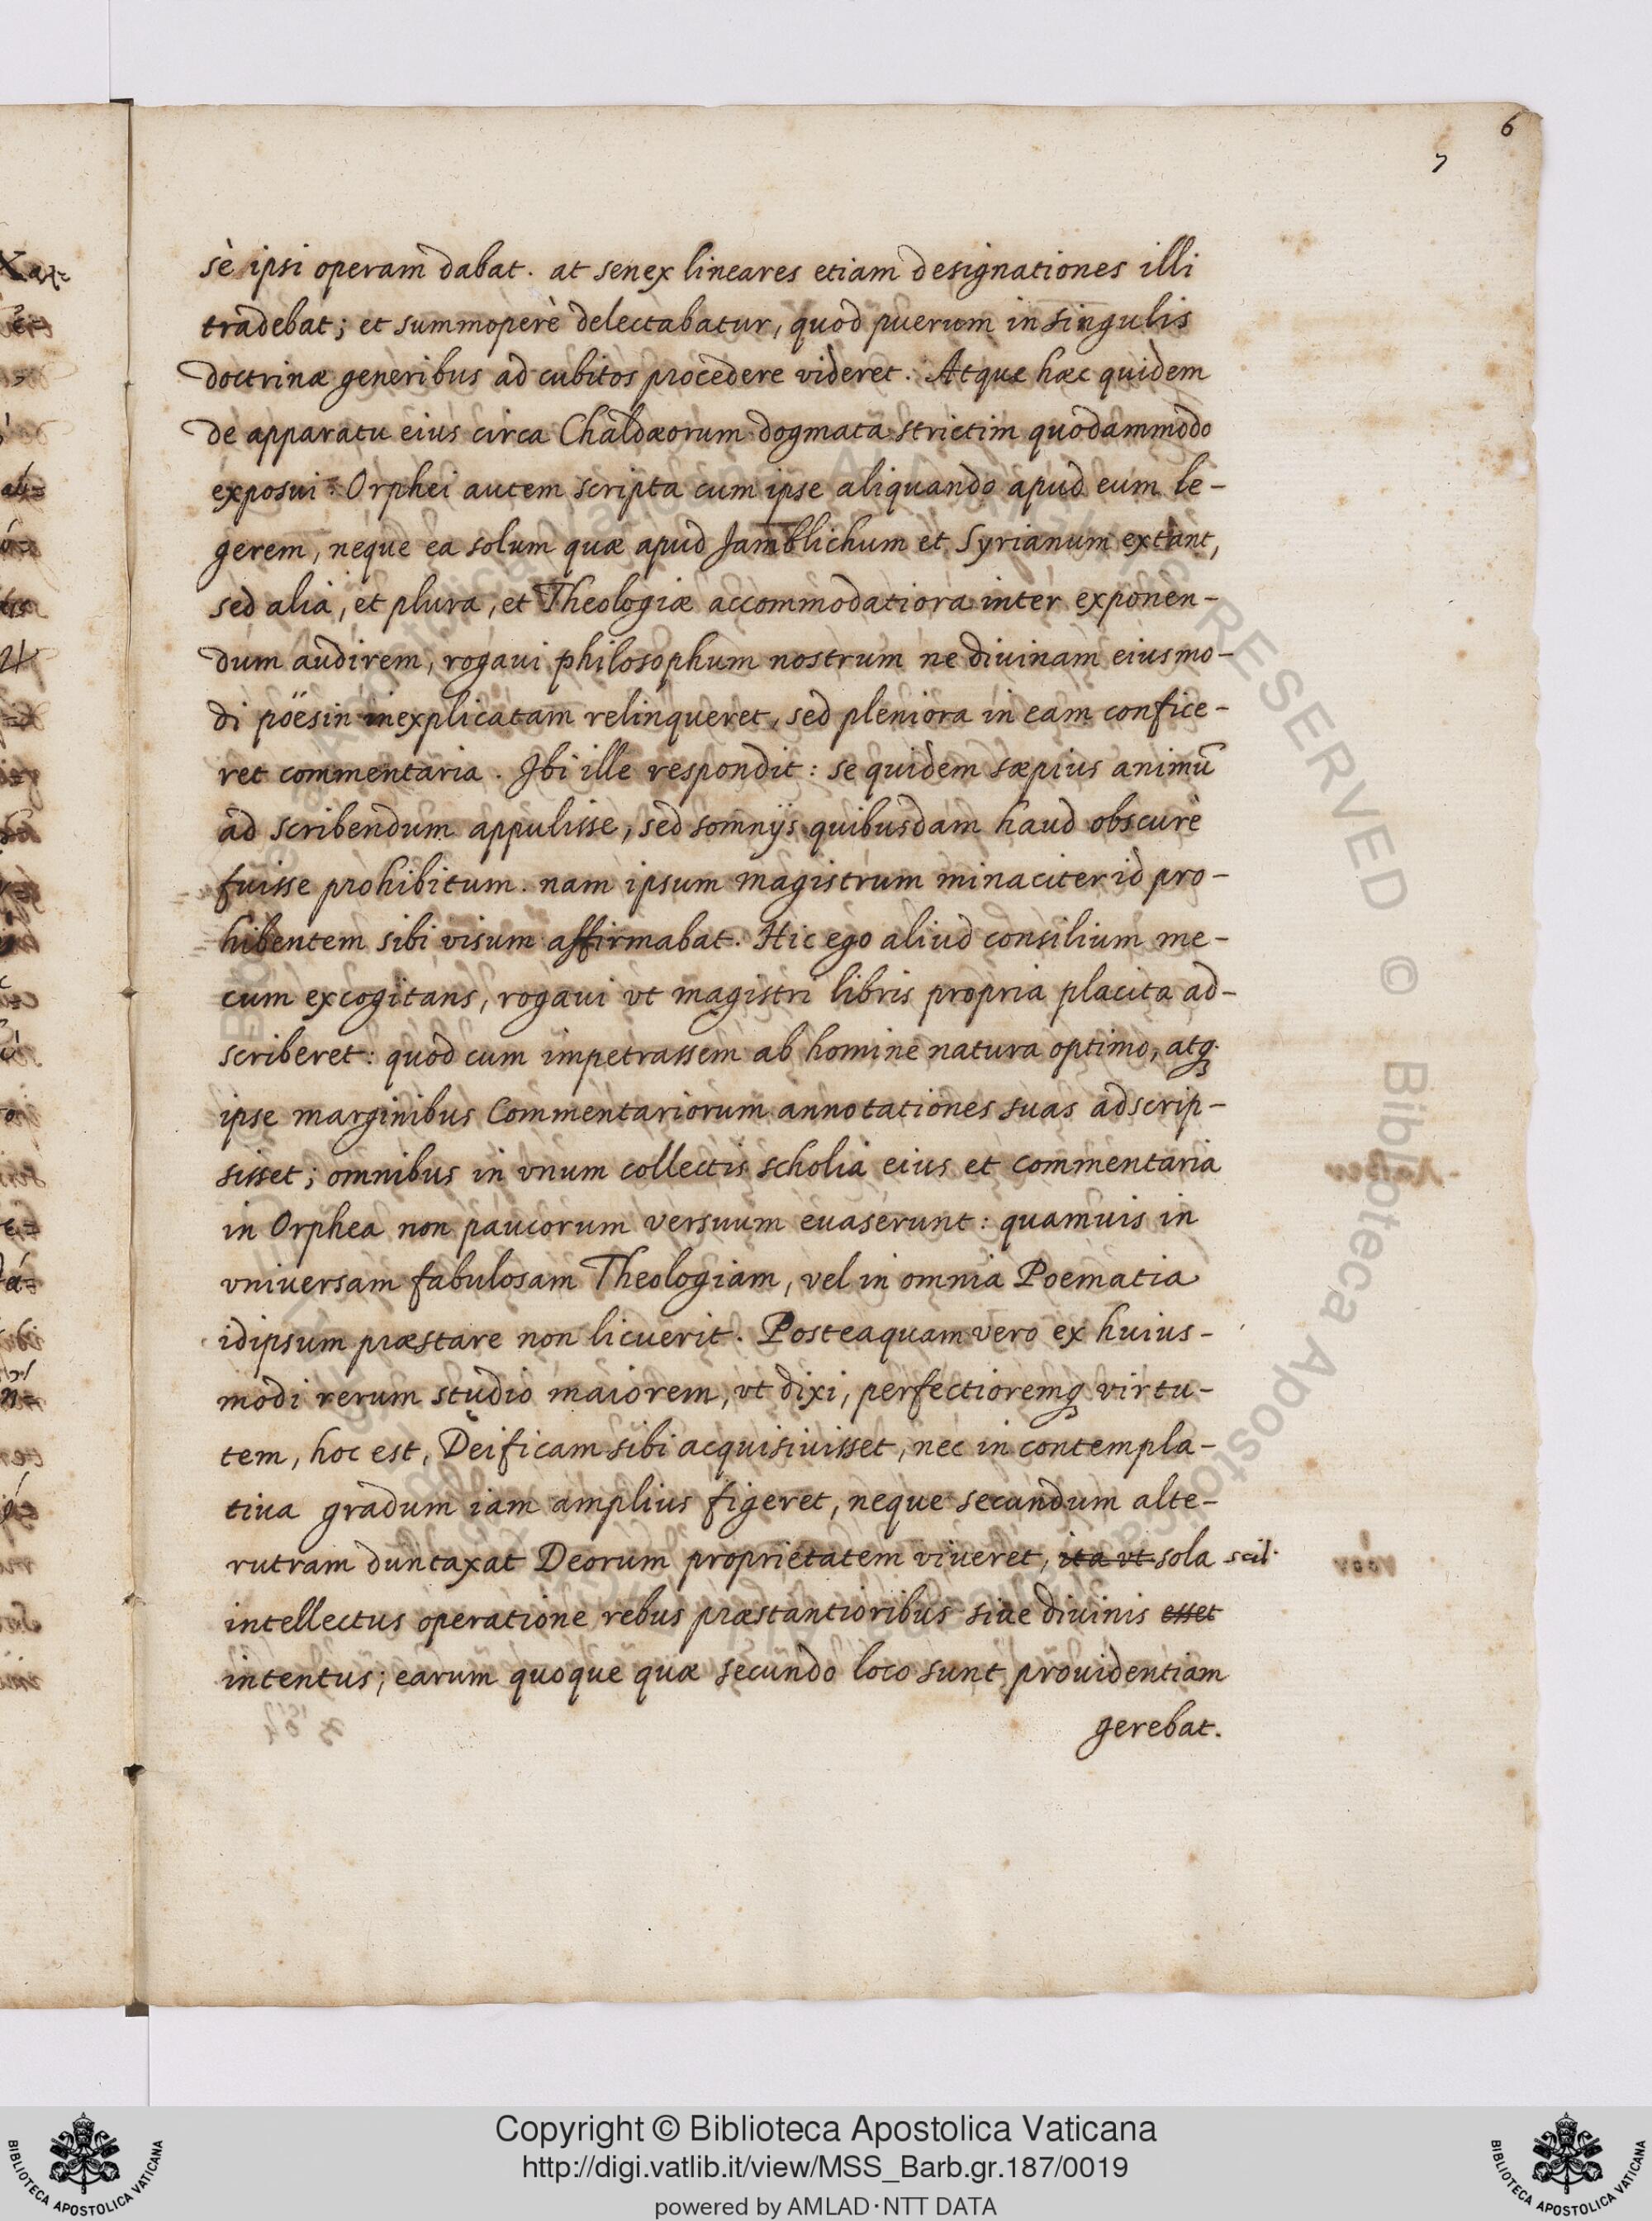 6
7
sè ipsi operam dabat. at senex lineares etiam designationes illi
tradebat; et summoperè delectabatur, quod puerum in singulis
doctrinæ generibus ad cubitos procedere videret. Atque hæc quidem
de apparatu eius circa Chaldæorum dogmata strictim quodammodo
exposui. Orphei autem scripta cum ipse aliquando apud eum le-
gerem, neque ea solum quæ apud Jamblichum et Syrianum extant,
sed alia, et plura, et Theologiæ accommodatiora inter exponen-
dum audirem, rogaui philosophum nostrum ne diuinam eiusmo-
di poësin inexplicatam relinqueret, sed pleniora in eam confice-
ret commentaria. Ibi ille respondit: se quidem sæpius animũ
ad scribendum appulisse, sed somnijs quibusdam haud obscurè
fuisse prohibitum. nam ipsum magistrum minaciter id pro-
hibentem sibi visum affirmabat. Hic ego aliud consilium me-
cum excogitans, rogaui vt magistri libris propria placita ad-
scriberet: quod cum impetrassem ab homine natura optimo, atq.
ipse marginibus Commentariorum annotationes suas adscrip-
sisset; omnibus in vnum collectis scholia eius et commentaria
in Orphea non paucorum versuum euaserunt: quamuis in
vniuersam fabulosam Theologiam, vel in omnia Poematia
idipsum præstare non licuerit. Posteaquam vero ex huius-
modi rerum studio maiorem, vt dixi, perfectioremq virtu-
tem, hoc est, Deificam sibi acquisiuisset, nec in contempla-
tiua gradum iam amplius figeret, neque secundum alte-
rutram duntaxat Deorum proprietatem viueret, ita vt sola scil.
intellectus operatione rebus præstantioribus siue diuinis esset
intentus; earum quoque quæ secundo loco sunt prouidentiam
gerebat.
Copyright © Biblioteca Apostolica Vaticana
http://digi.vatlib.it/view/MSS_Barb.gr.187/0019
powered by AMLAD·NTT DATA